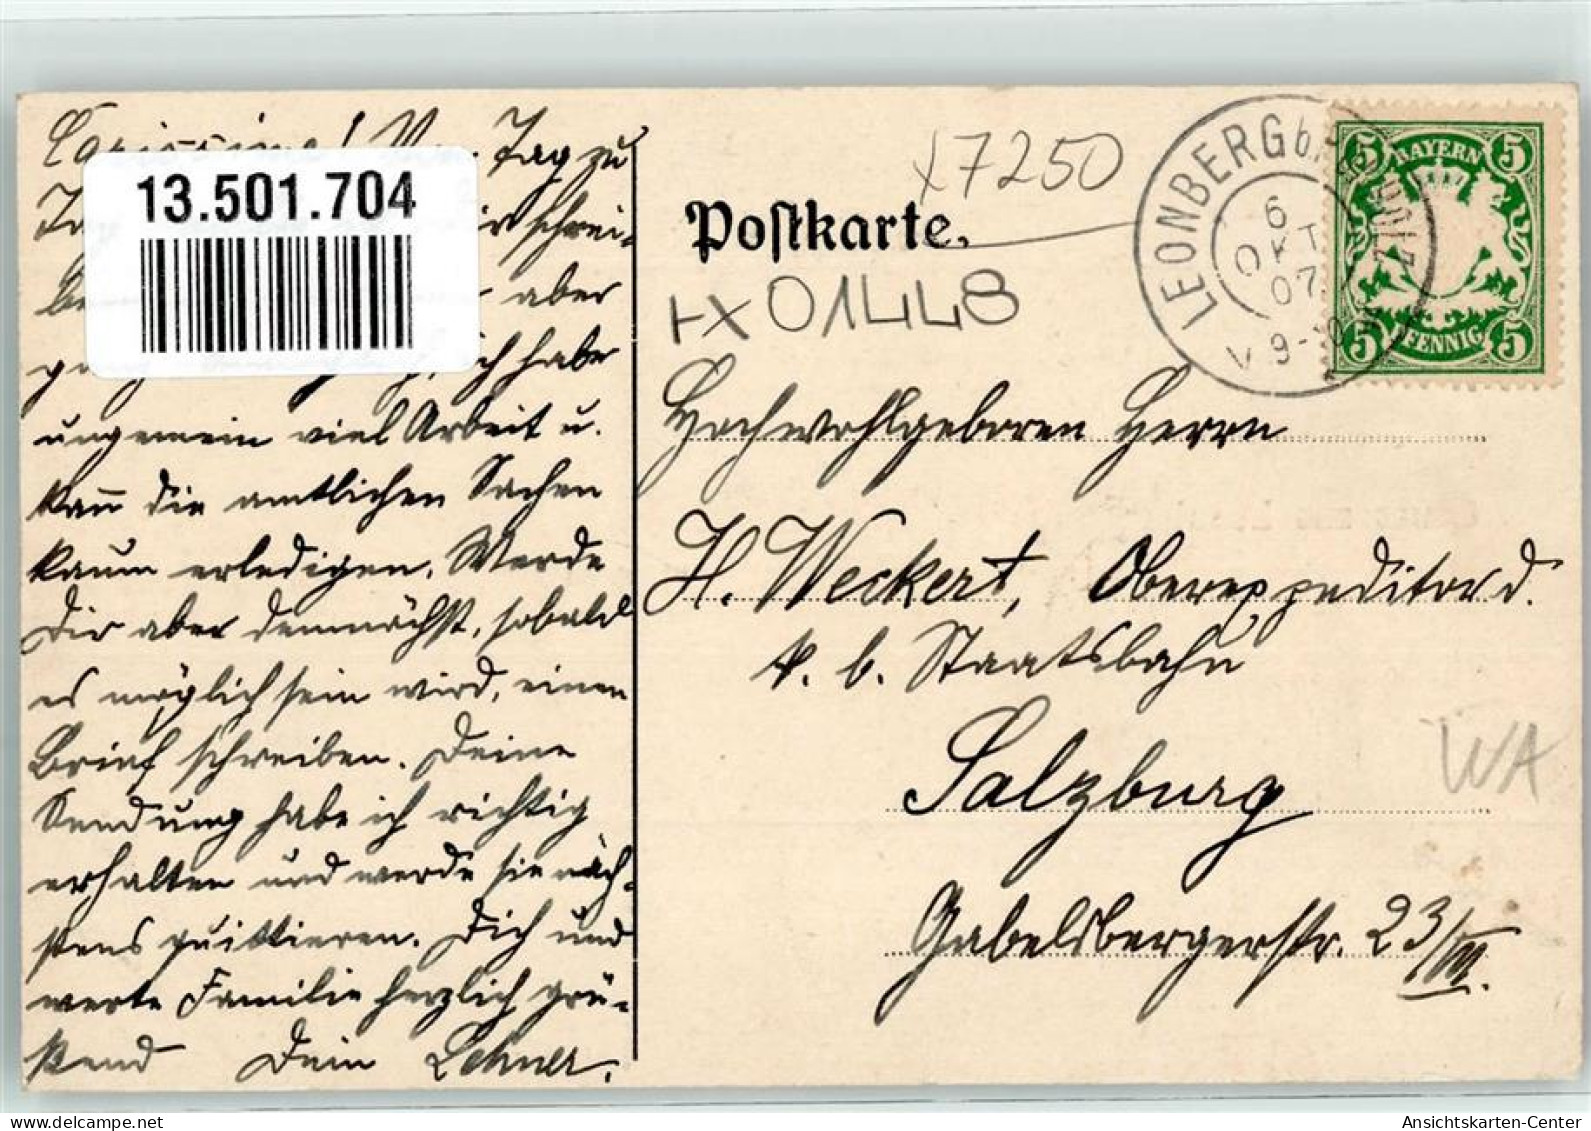 Carissime! Von Tag zu
13.501.704
schrei-
be
aber
ich habe
ungemein viel Arbeit u.
kann die amtlichen Sachen
kaum erledigen. Werde
Dir aber demnächst, sobald
es möglich sein wird, einen
Brief schreiben. Deine
Sendung habe ich richtig
erhalten und werde sie näch-
stens quittieren. Dich und
werte Familie herzlich grü-
ßend Dein Lehner.
x7250
Postkarte.
HX01448
LEONBERG b.
6
OKT
07
V 9-10
5 BAYERN 5
5 PFENNIG 5
Hochwohlgeboren Herrn
H. Weckert, Oberexpeditor d.
k. b. Staatsbahn
Salzburg
Gabelsbergerstr. 23/III.
WA
Ansichtskarten-Center